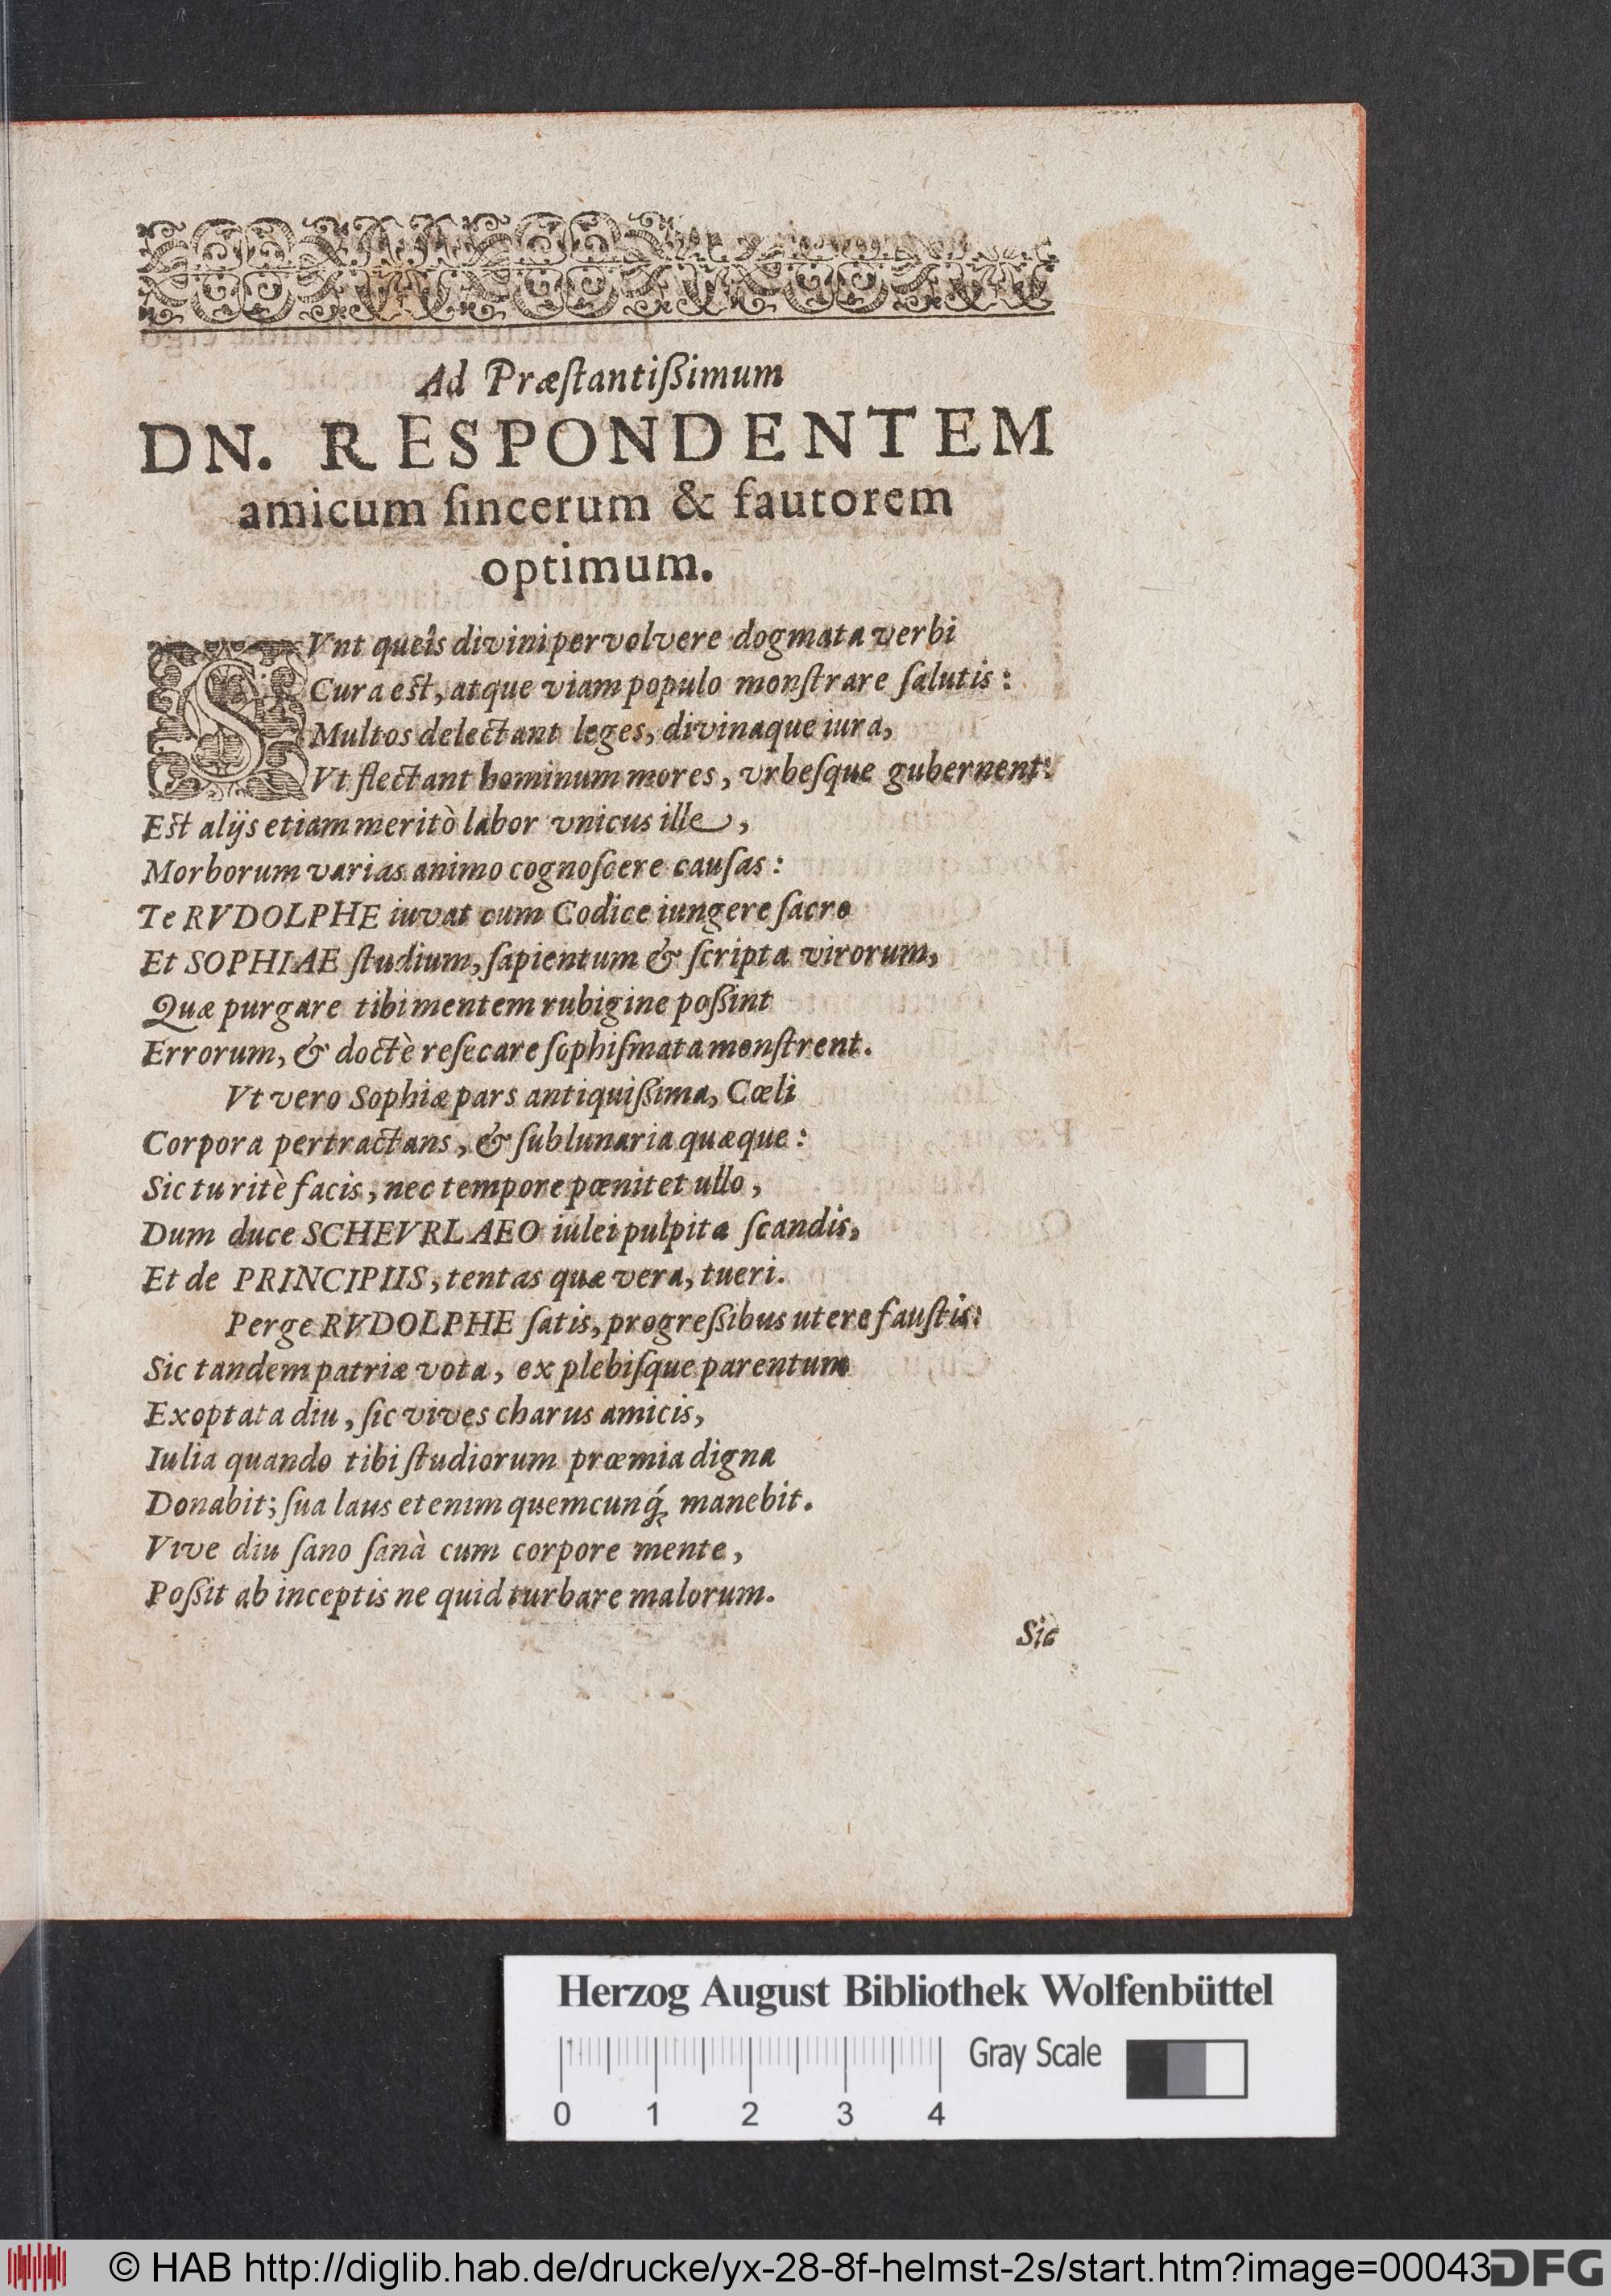 Ad Præſtantißimum
DN. RESPONDENTEM
amicum ſincerum & fautorem
optimum.
SVnt queîs divini pervolvere dogmata verbi
Cura est, atque viam populo monſtrare ſalutis:
Multos delectant leges, divinaque iura,
Vt flectant hominum mores, vrbeſque gubernent:
Est alijs etiam meritò labor vnicus ille,
Morborum varias animo cognoſcere cauſas:
Te RVDOLPHE iuvat cum Codice iungere ſacro
Et SOPHIAE ſtudium, ſapientum & ſcripta virorum,
Quæ purgare tibi mentem rubigine poßint
Errorum, & doctè reſecare ſophiſmata monſtrent.
Vt vero Sophiæ pars antiquißima, Cœli
Corpora pertractans, & ſublunaria quæque:
Sic tu ritè facis, nec tempore pœnitet ullo,
Dum duce SCHEVRLAEO iulei pulpita ſcandis,
Et de PRINCIPIIS, tentas quæ vera, tueri.
Perge RVDOLPHE ſatis, progreßibus utere fauſtis:
Sic tandem patriæ vota, ex plebiſque parentum
Exoptata diu, ſic vives charus amicis,
Iulia quando tibi ſtudiorum præmia digna
Donabit; ſua laus etenim quemcunq́; manebit.
Vive diu ſano ſanà cum corpore mente,
Poßit ab inceptis ne quid turbare malorum.
Sic
Herzog August Bibliothek Wolfenbüttel
Gray Scale
0 1 2 3 4
© HAB http://diglib.hab.de/drucke/yx-28-8f-helmst-2s/start.htm?image=00043
DFG